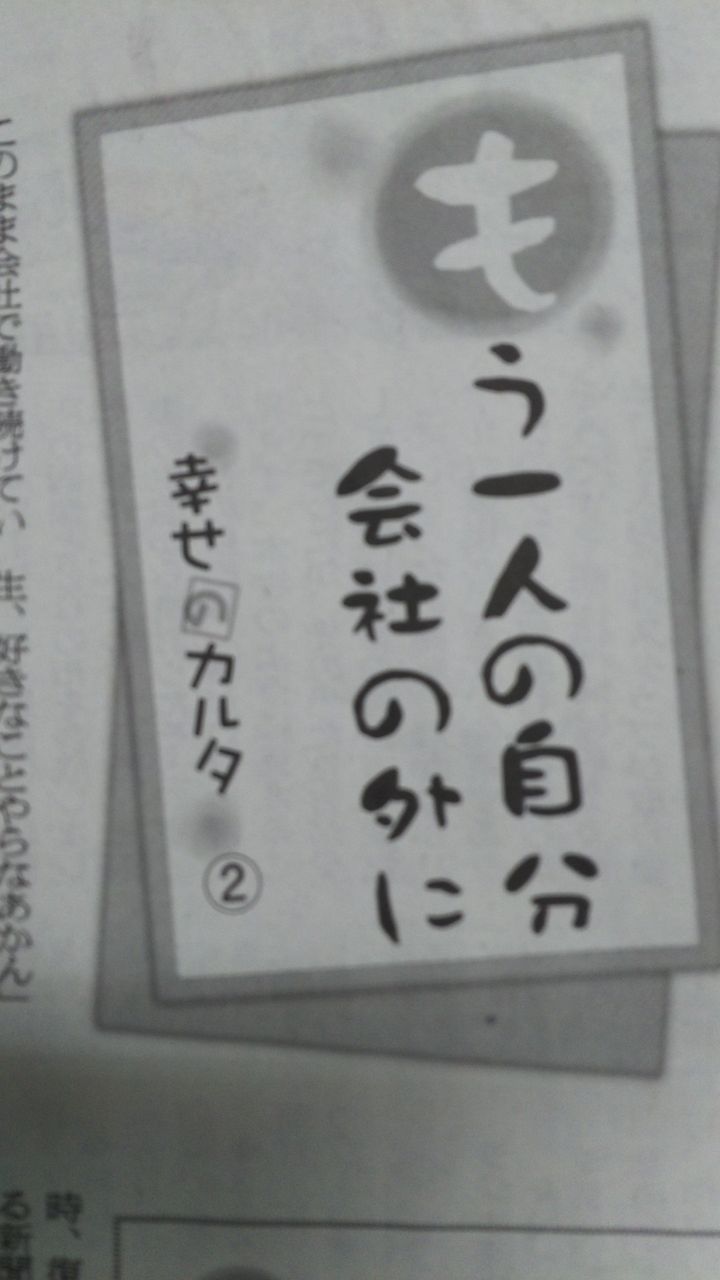 もう一人の自分
会社の外に
幸せのカルタ
②
このまま会社で働き続けてい
生、好きなことやらなあかん」
時、復
る新聞